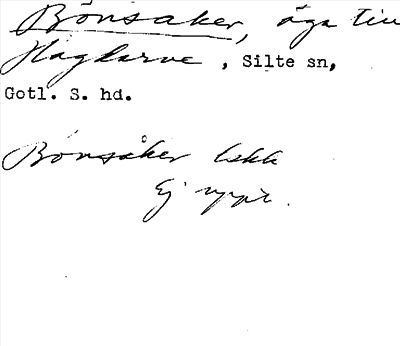 Bönsaker, äga till
Haglarve, Silte sn,
Gotl. S. hd.
Bönsåker Lskk
Ej uppt.